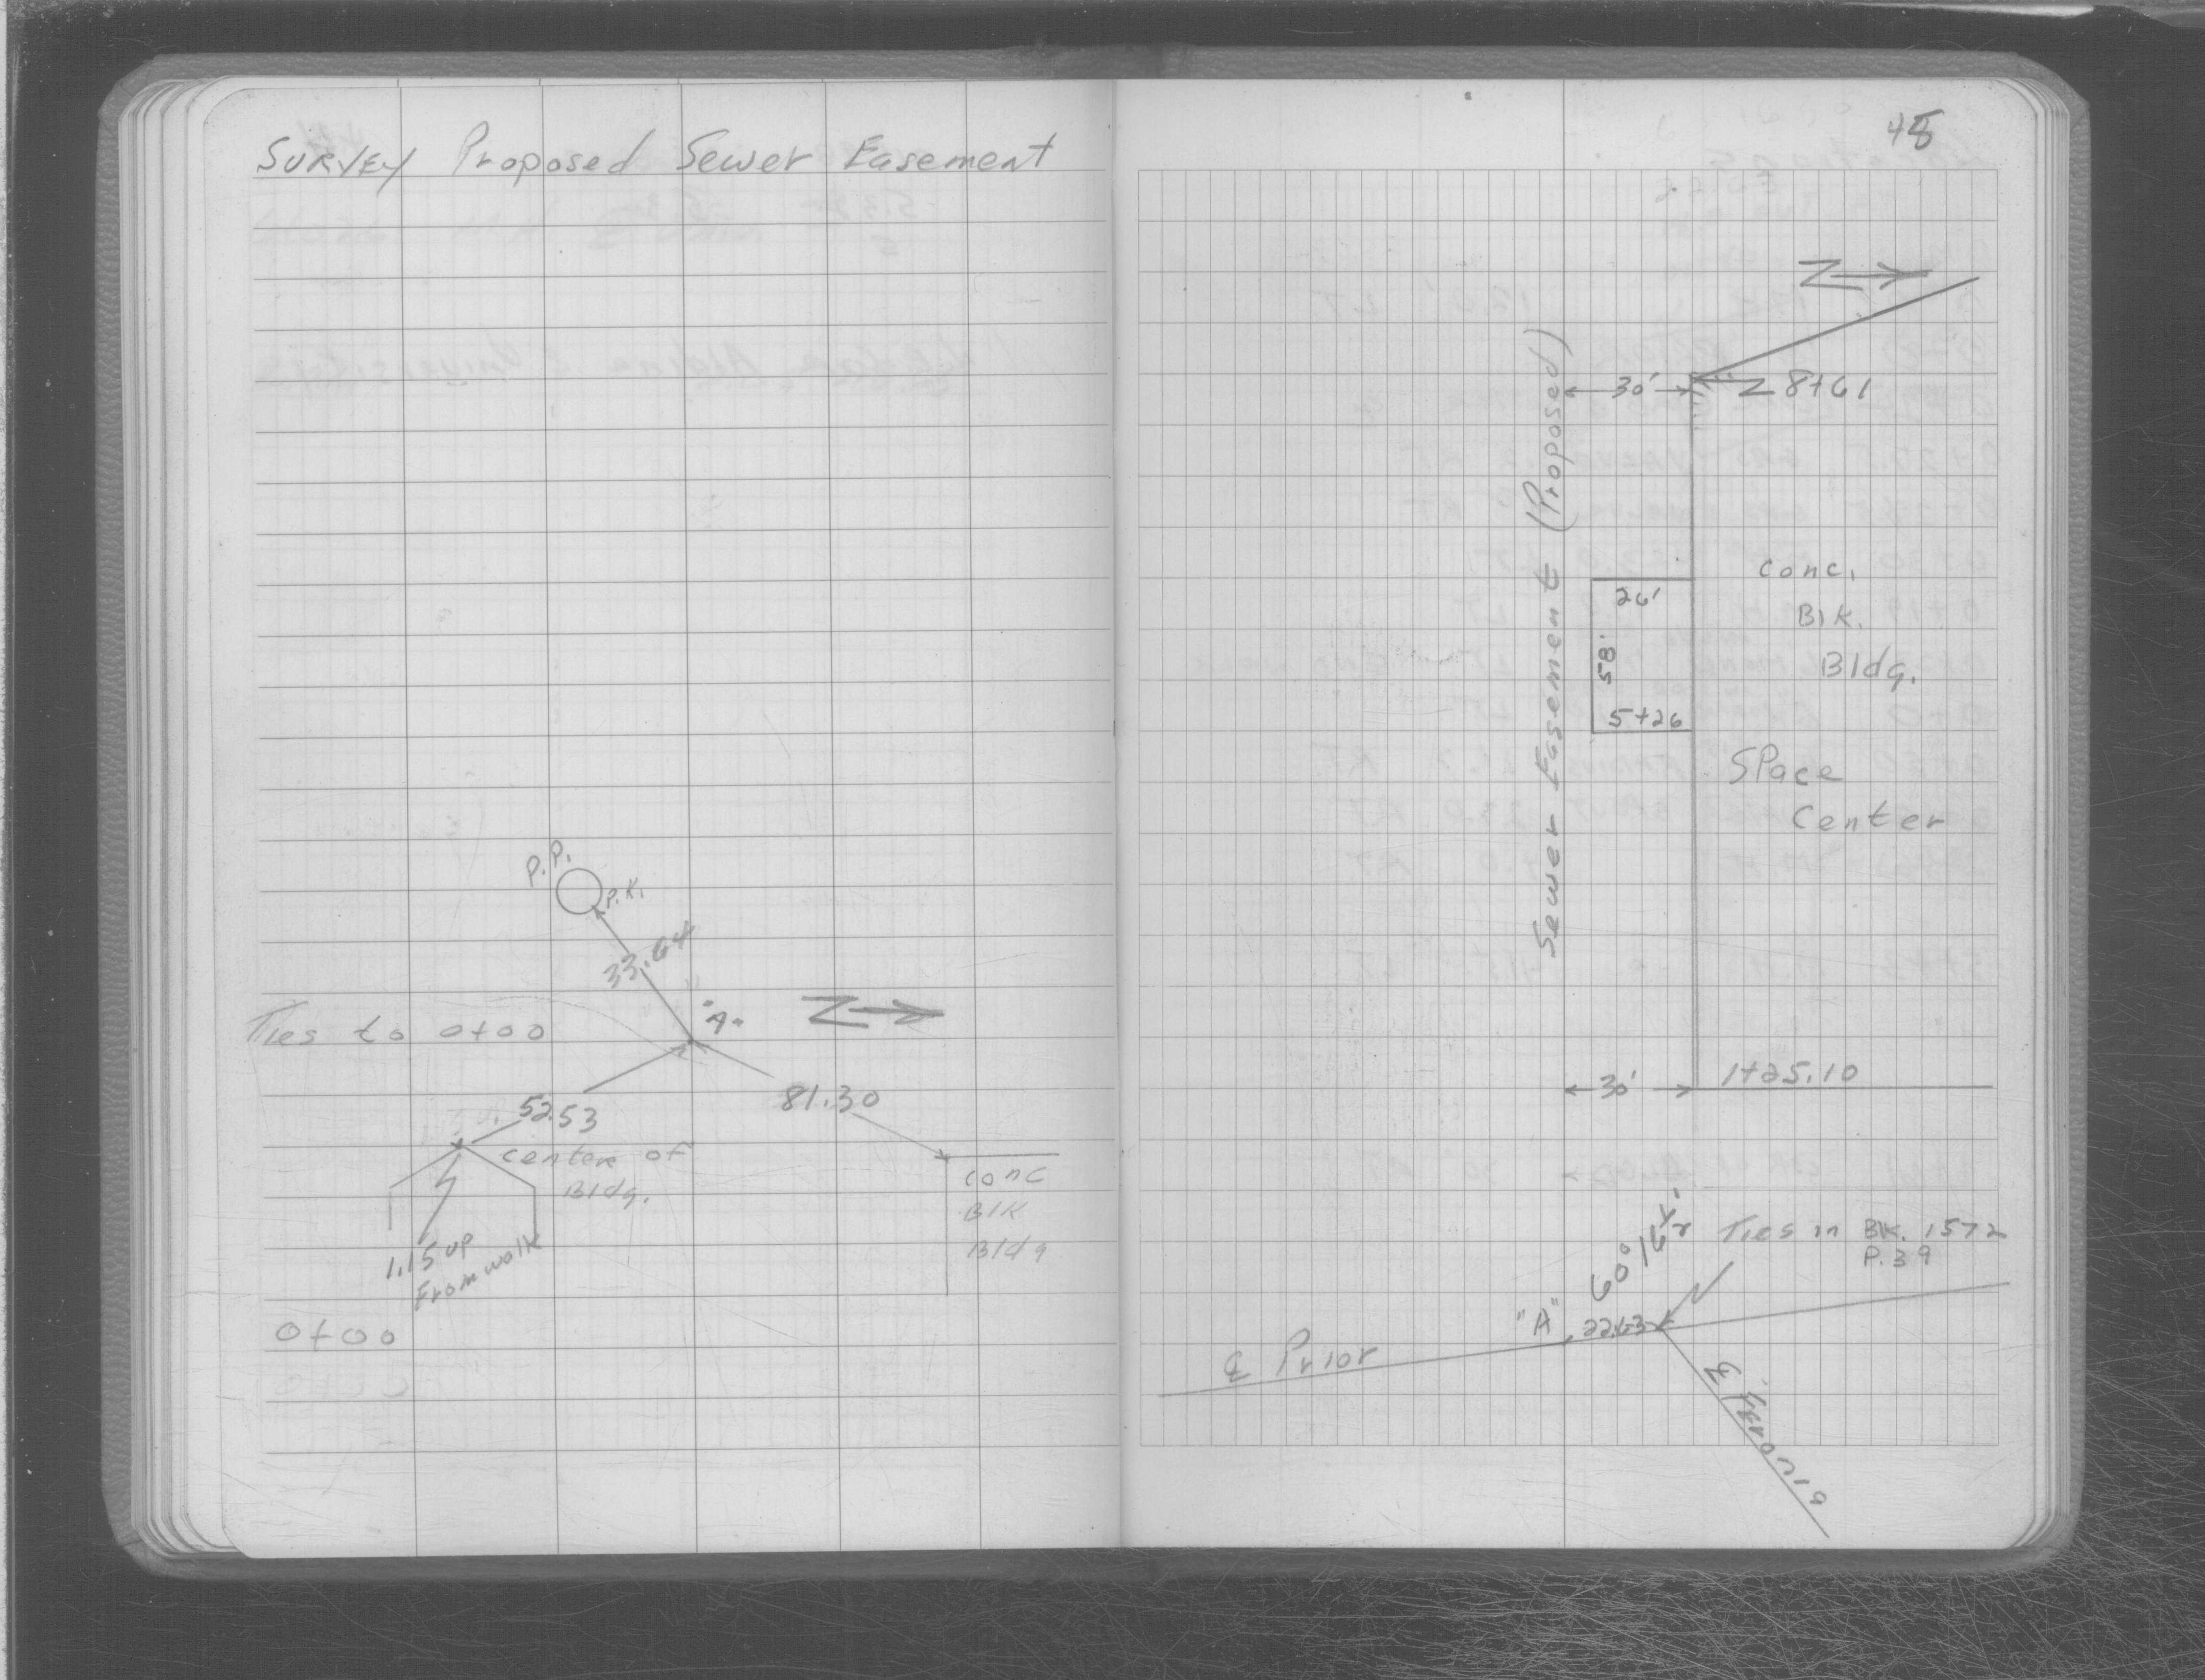 Survey Proposed Sewer Easement
P.P.
P.K.
33.64
"A"
Z
Ties to 0+00
52.53
81.30
center of
Bldg.
conc
Blk
Bldg
1.15 up
From walk
0+00
48
Z
30'
8+61
Sewer Easement (Proposed)
conc.
Blk.
Bldg.
26'
58'
5+26
Space
Center
30'
1+25.10
60°16½'
Ties in Bk. 1572
P.39
"A"
22.63
℄ Prior
℄